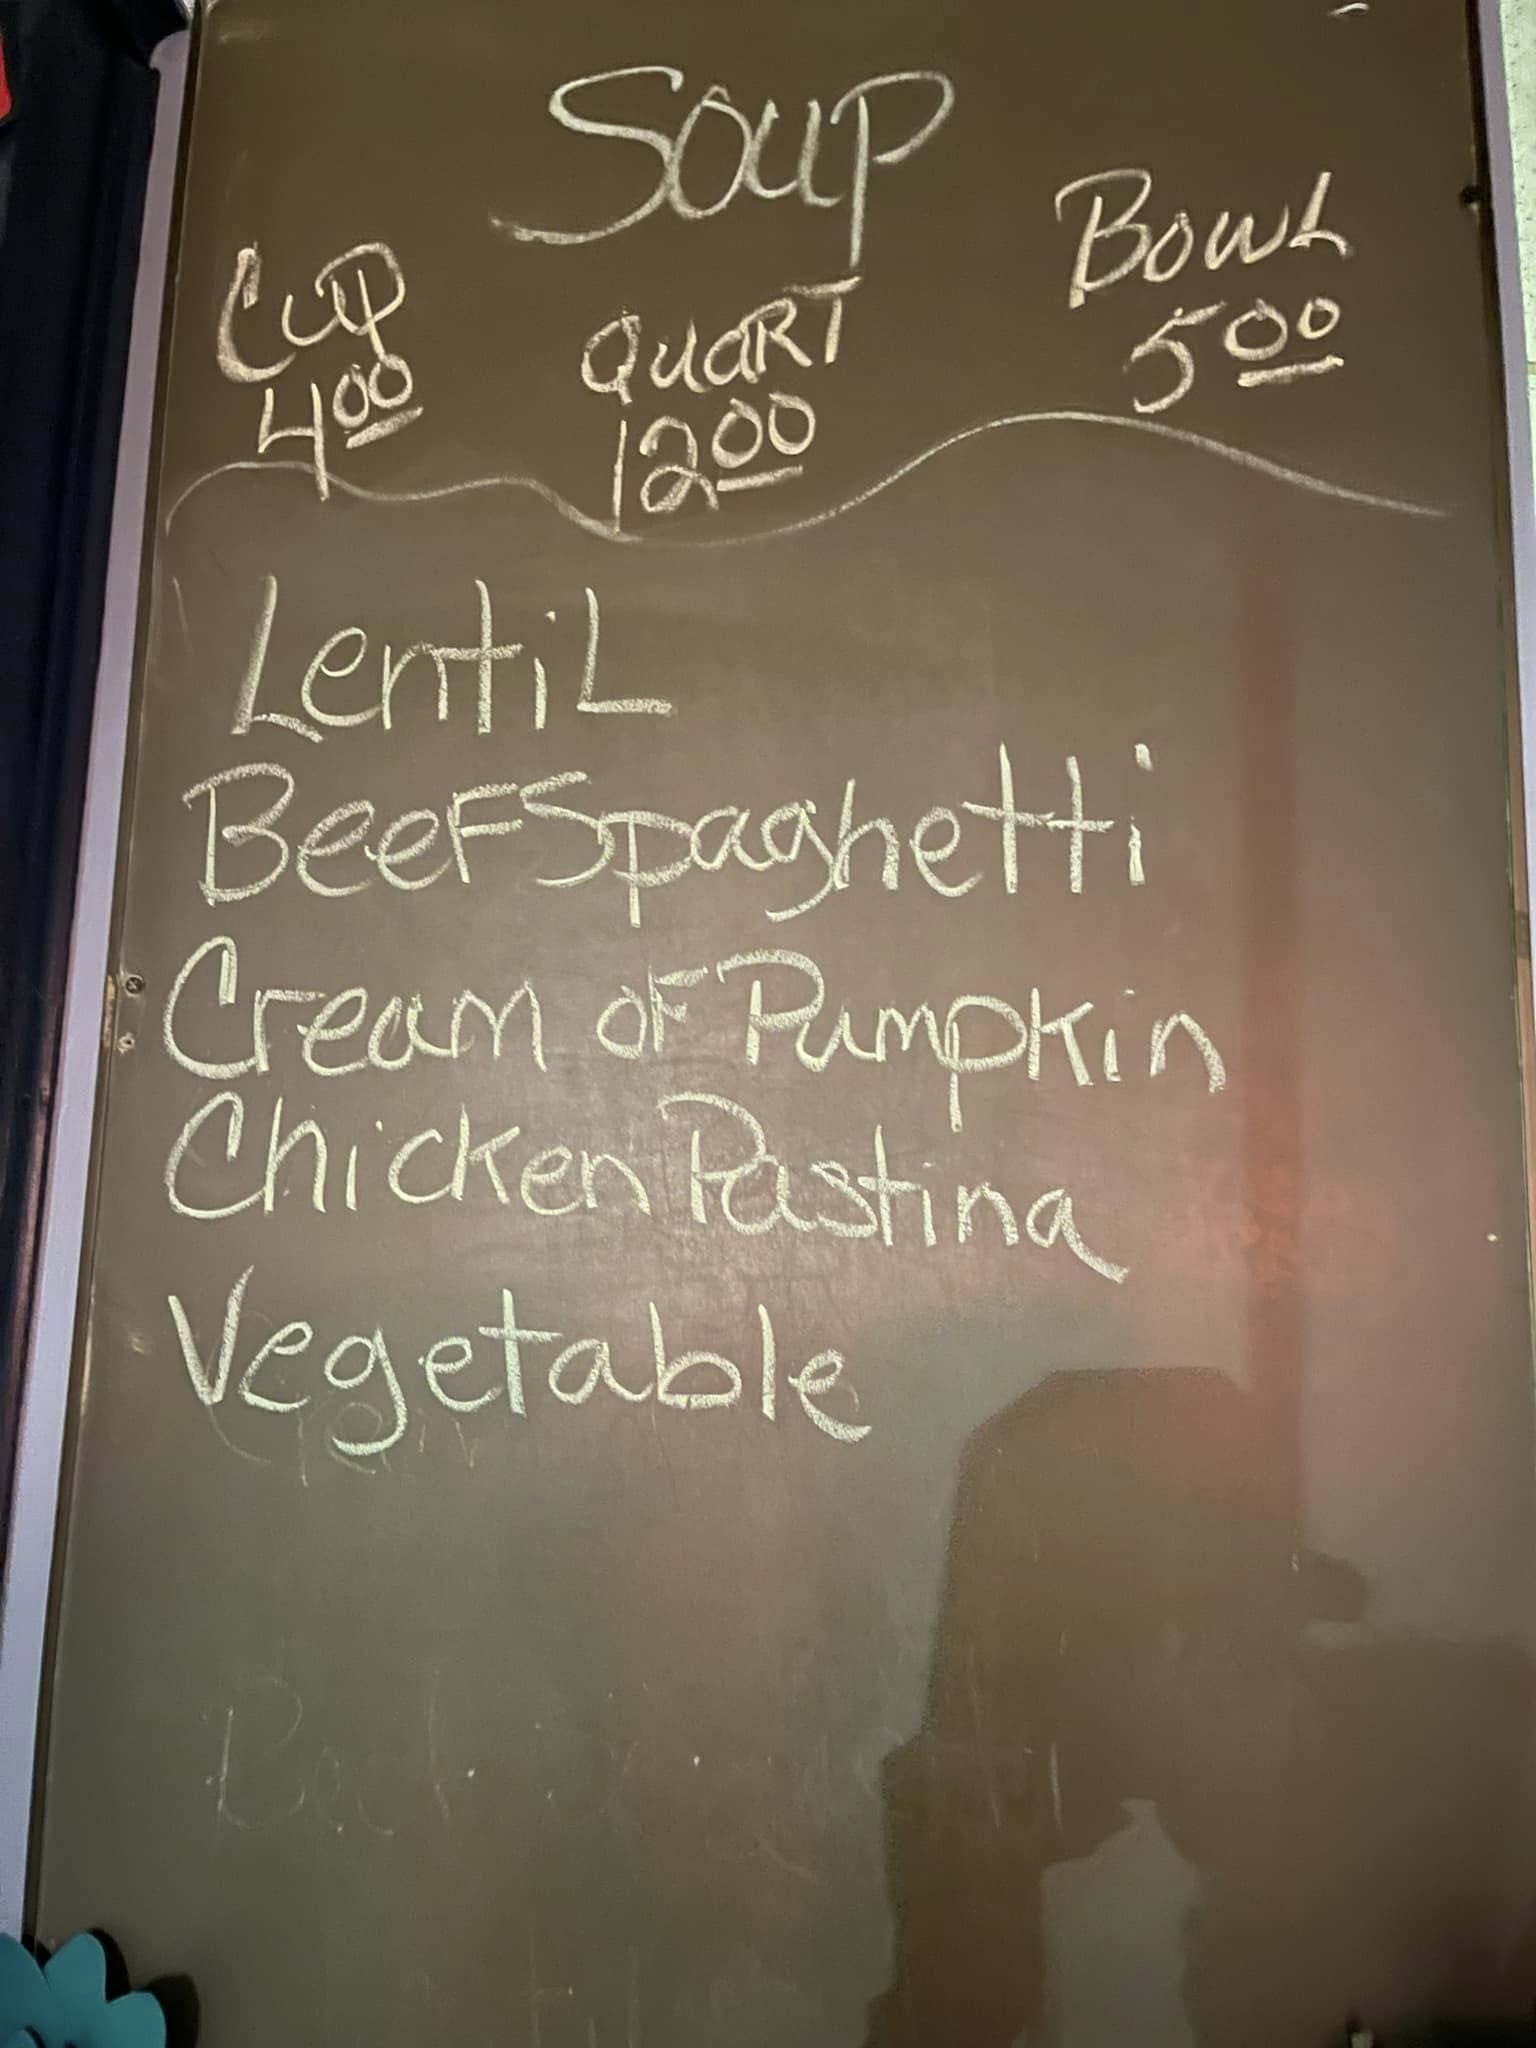 Soup
Cup Quart Bowl
4.00 12.00 5.00
Lentil
Beef Spaghetti
Cream of Pumpkin
Chicken Pastina
Vegetable